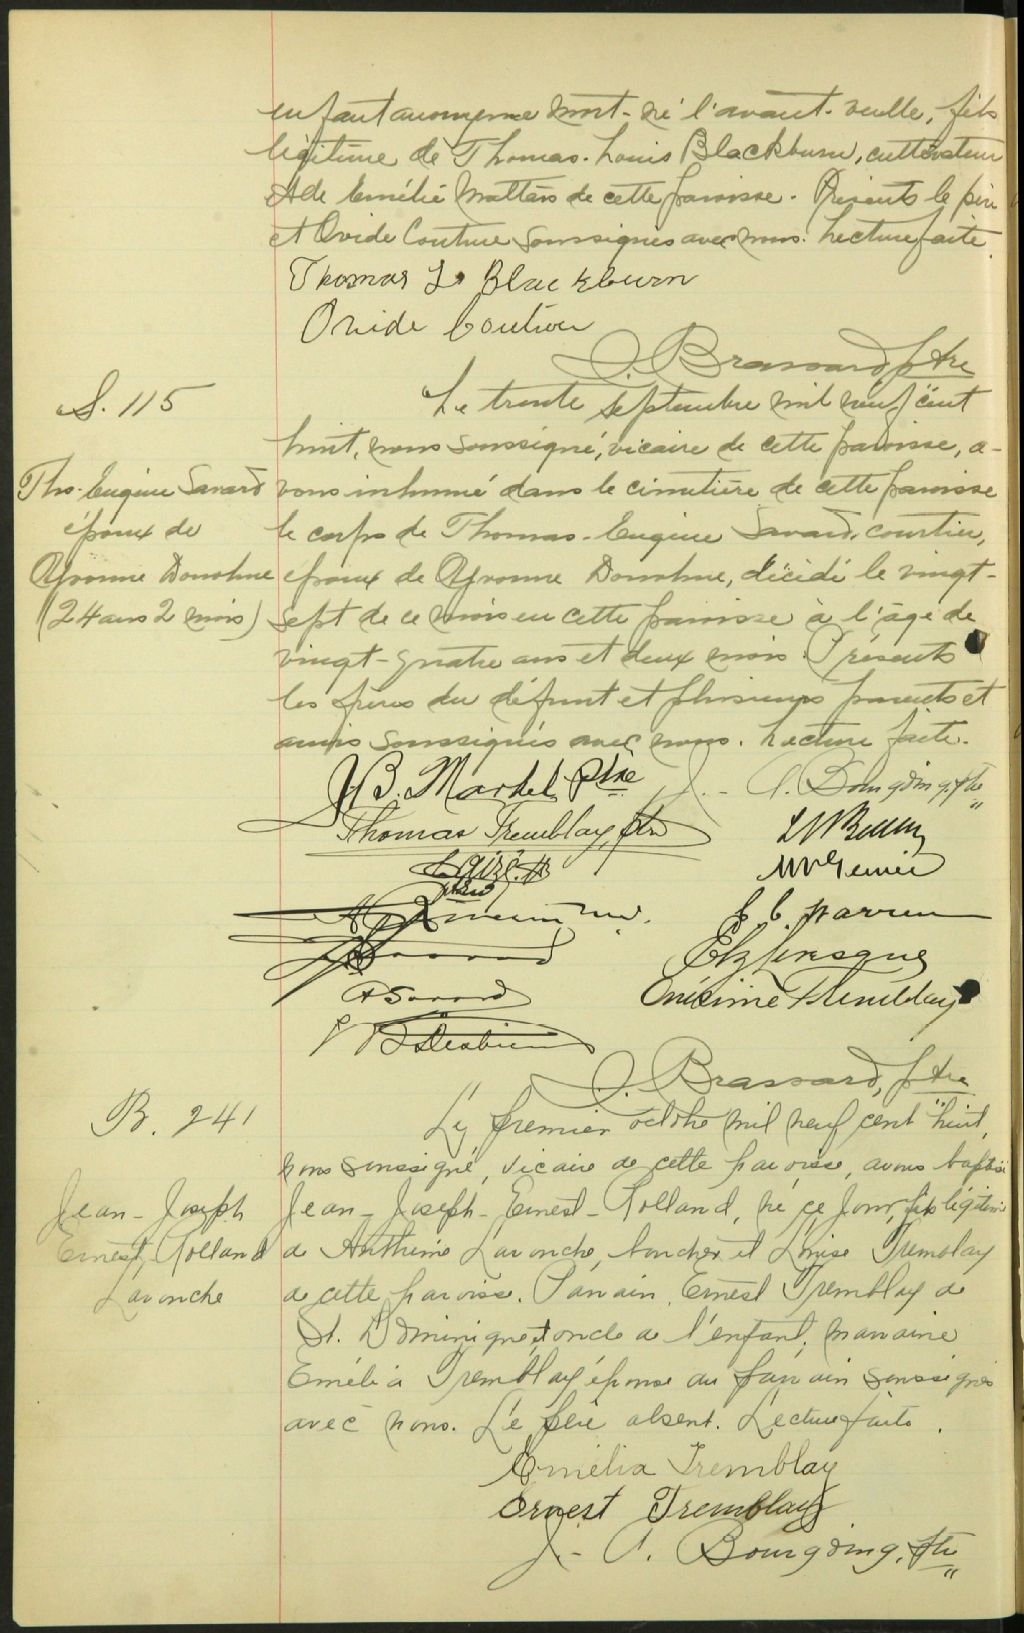 enfant anonyme mort-né l'avant-veille, fils
légitime de Thomas-Louis Blackburn, cultivateur
& de Emélie Maltais de cette paroisse. Présents le père
et Ovide Couture soussignés avec nous. Lecture faite.
Thomas L. Blackburn
Ovide Couture
J. Brassard, ptre
S. 115
Le trente septembre mil neuf cent
huit, nous soussigné, vicaire de cette paroisse, a-
Ths-Eugène Savard
vons inhumé dans le cimetière de cette paroisse
époux de
le corps de Thomas-Eugène Savard, courtier,
Yvonne Donohue
époux de Yvonne Donohue, décédé le vingt-
(24 ans 2 mois)
sept de ce mois en cette paroisse à l'âge de
vingt-quatre ans et deux mois. Présents
les frères du défunt et plusieurs parents et
amis soussignés avec nous. Lecture faite.
J B. Martel Ptre
J.-A. Bourgoing, ptre
Thomas Tremblay, ptre
E. C. Warren
Elz Levesque
A Savard
Onésime Tremblay
J. Brassard, ptre
B. 241
Le premier octobre mil neuf cent huit,
nous soussigné, vicaire de cette paroisse, avons baptisé
Jean-Joseph
Jean-Joseph-Ernest-Rolland, né ce jour, fils légitime
Ernest, Rolland
de Anthime Lavonche, boucher et Louise Tremblay
Lavonche
de cette paroisse. Parrain, Ernest Tremblay de
St. Dominique, oncle de l'enfant; marraine
Emélia Tremblay épouse du parrain soussignés
avec nous. Le père absent. Lecture faite.
Emélia Tremblay
Ernest Tremblay
J.-A. Bourgoing, ptre